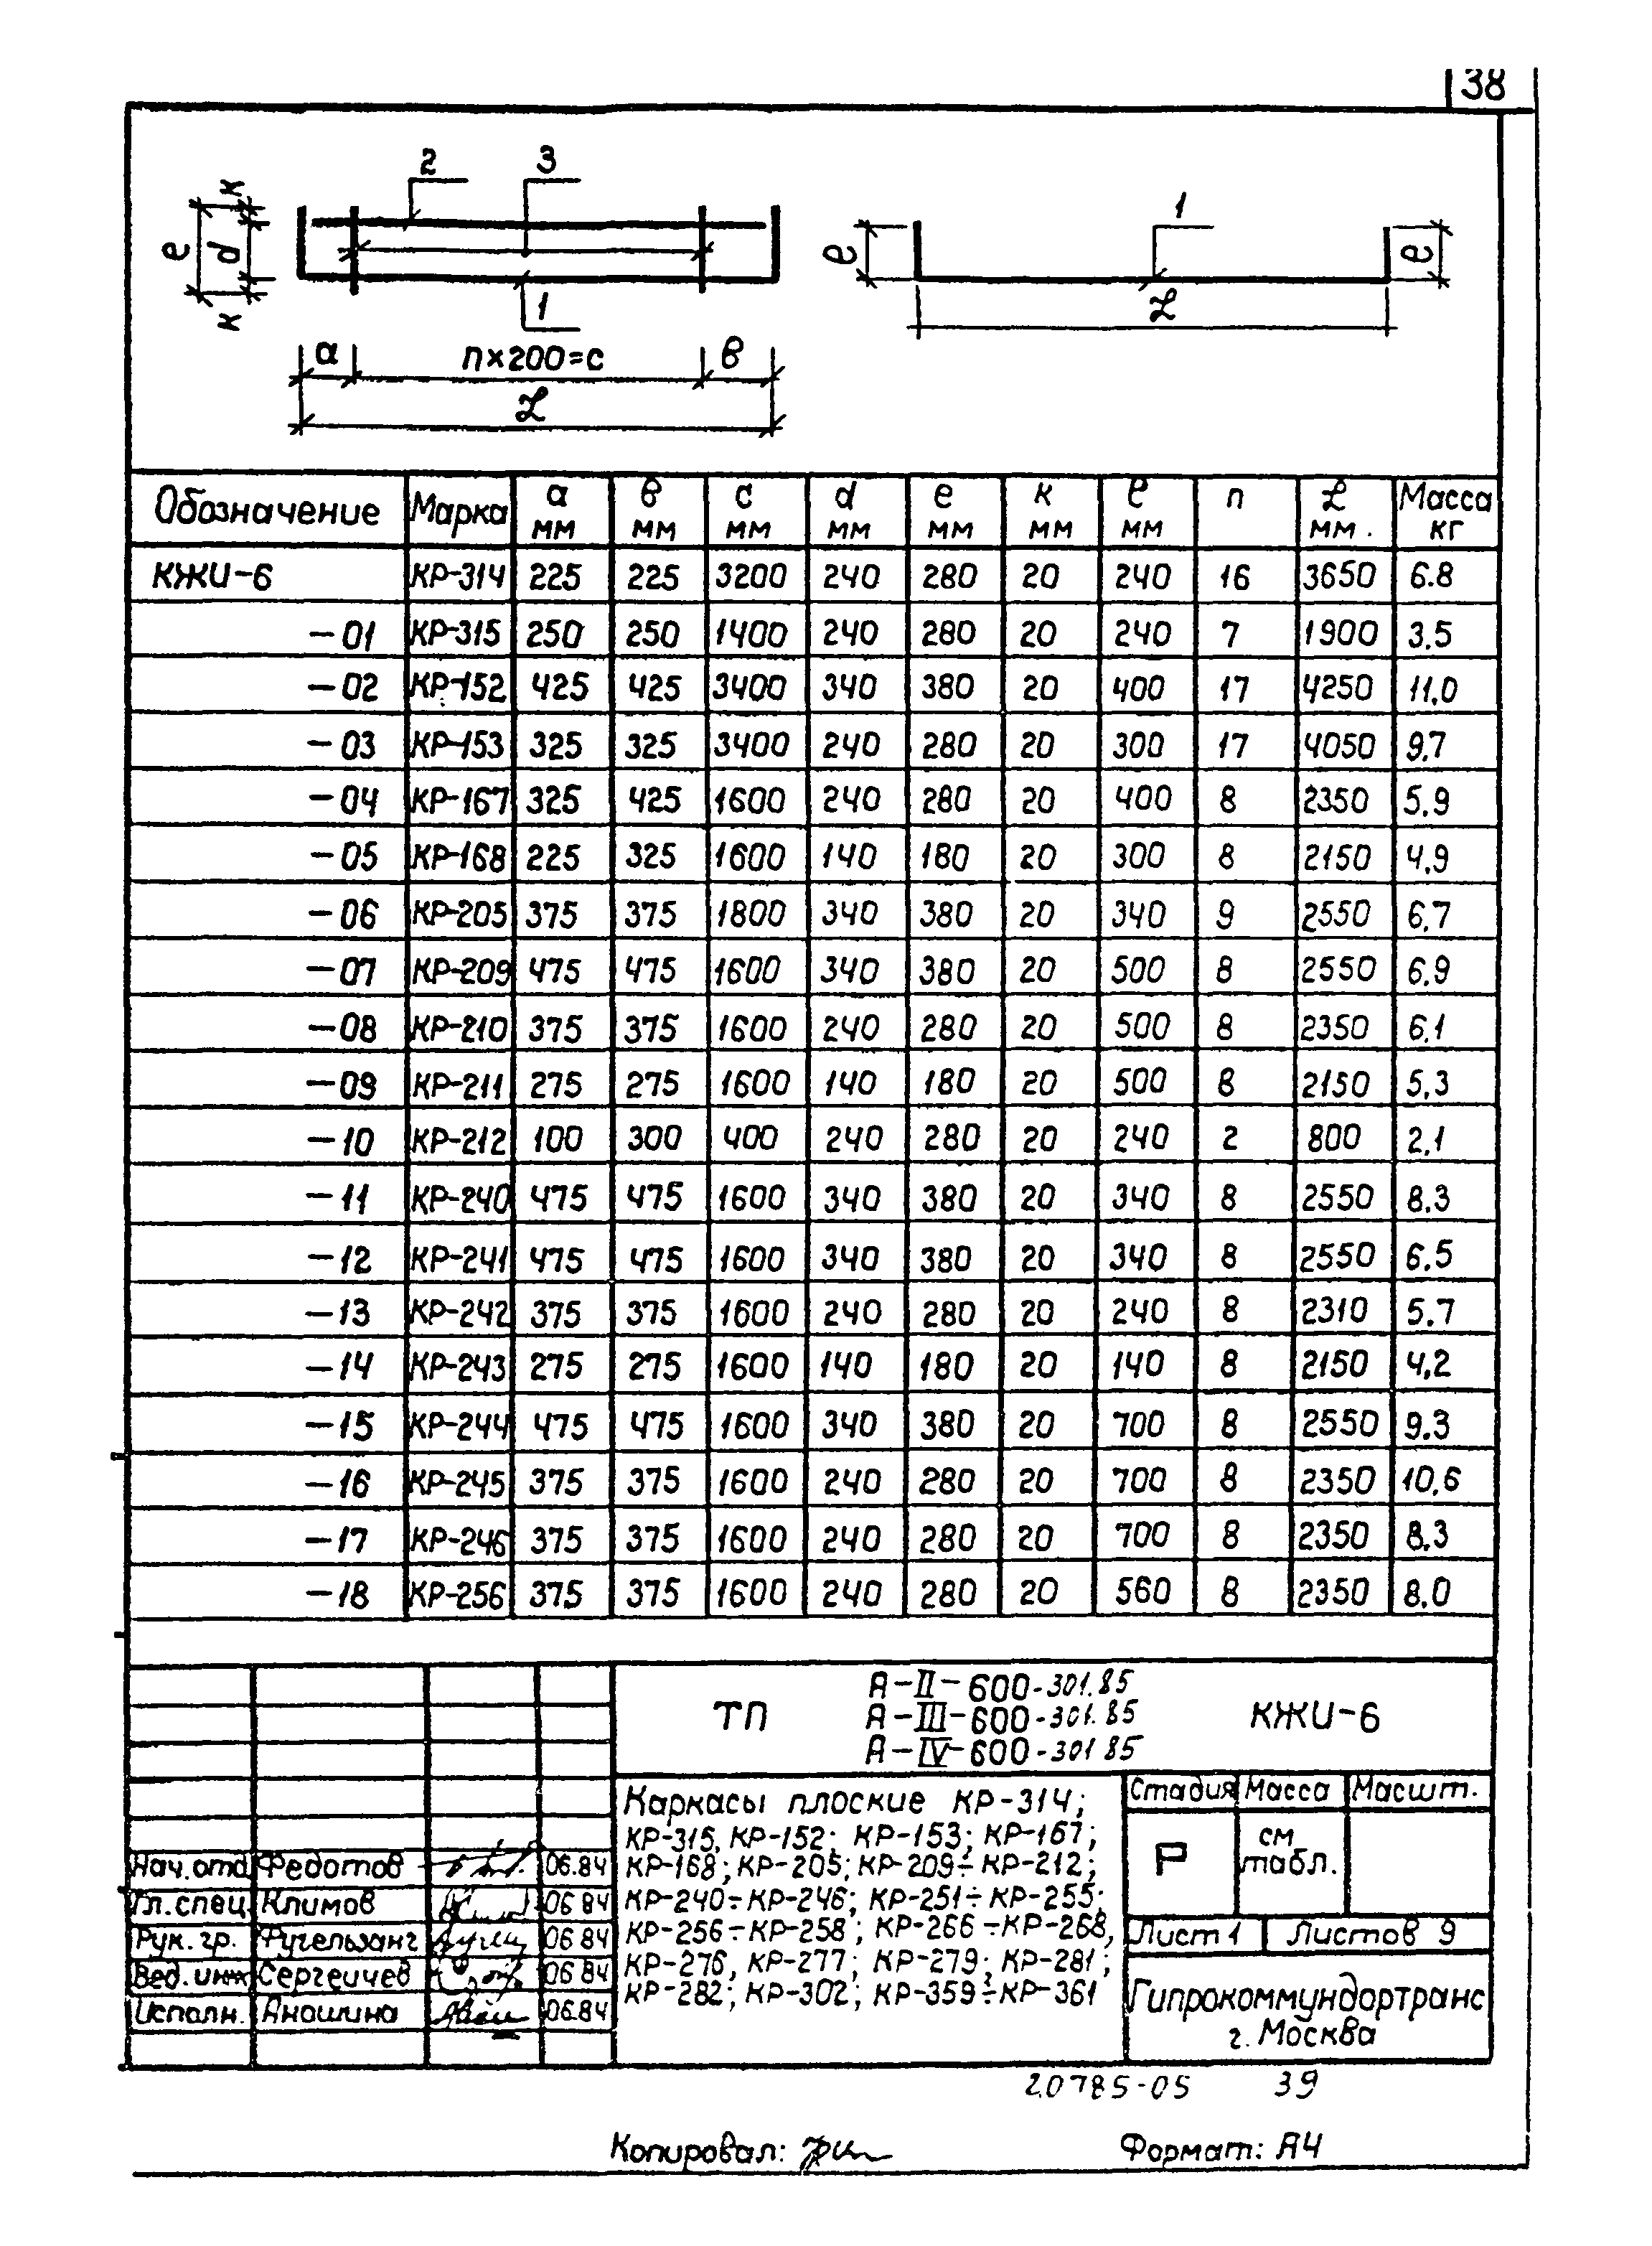 38
2 3
к
е d
к
1
а n×200=с в
L
1
ℓ ℓ
L
Обозначение Марка а мм в мм с мм d мм е мм к мм ℓ мм n L мм. Масса кг
КЖИ-6 КР-314 225 225 3200 240 280 20 240 16 3650 6.8
-01 КР-315 250 250 1400 240 280 20 240 7 1900 3.5
-02 КР-152 425 425 3400 340 380 20 400 17 4250 11,0
-03 КР-153 325 325 3400 240 280 20 300 17 4050 9,7
-04 КР-167 325 425 1600 240 280 20 400 8 2350 5,9
-05 КР-168 225 325 1600 140 180 20 300 8 2150 4,9
-06 КР-205 375 375 1800 340 380 20 340 9 2550 6,7
-07 КР-209 475 475 1600 340 380 20 500 8 2550 6,9
-08 КР-210 375 375 1600 240 280 20 500 8 2350 6,1
-09 КР-211 275 275 1600 140 180 20 500 8 2150 5,3
-10 КР-212 100 300 400 240 280 20 240 2 800 2,1
-11 КР-240 475 475 1600 340 380 20 340 8 2550 8.3
-12 КР-241 475 475 1600 340 380 20 340 8 2550 6.5
-13 КР-242 375 375 1600 240 280 20 240 8 2310 5.7
-14 КР-243 275 275 1600 140 180 20 140 8 2150 4,2
-15 КР-244 475 475 1600 340 380 20 700 8 2550 9.3
-16 КР-245 375 375 1600 240 280 20 700 8 2350 10,6
-17 КР-246 375 375 1600 240 280 20 700 8 2350 8,3
-18 КР-256 375 375 1600 240 280 20 560 8 2350 8,0
А-II-600-301.85
ТП А-III-600-301.85 КЖИ-6
А-IV-600-301 85
Каркасы плоские КР-314;
КР-315, КР-152; КР-153; КР-167;
КР-168; КР-205; КР-209÷КР-212;
КР-240÷КР-246; КР-251÷КР-255;
КР-256÷КР-258; КР-266÷КР-268,
КР-276, КР-277; КР-279; КР-281;
КР-282; КР-302; КР-359÷КР-361
Стадия Масса Масшт.
Р см табл.
Лист 1 Листов 9
Гипрокоммундортранс
г. Москва
Нач.отд Федотов 06.84
Гл.спец. Климов 06 84
Рук. гр. Фугельзанг 06 84
Вед.инж Сергеичев 06 84
Исполн. Аношина 06.84
20785-05 39
Копировал: Формат: А4